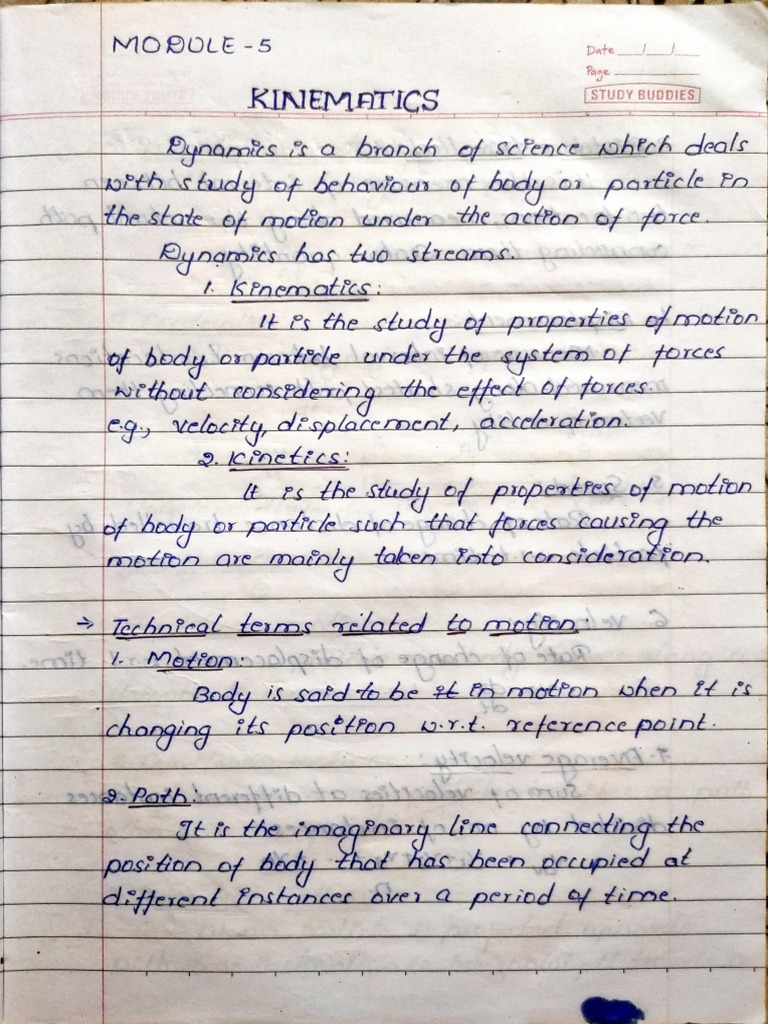 MODULE - 5
Date __/__/__
Page
STUDY BUDDIES
KINEMATICS
Dynamics is a branch of science which deals
with study of behaviour of body or particle in
the state of motion under the action of force.
Dynamics has two streams.
1. Kinematics:
It is the study of properties of motion
of body or particle under the system of forces
without considering the effect of forces.
e.g., velocity, displacement, acceleration.
2. Kinetics:
It is the study of properties of motion
of body or particle such that forces causing the
motion are mainly taken into consideration.
→ Technical terms related to motion:
1. Motion:
Body is said to be in motion when it is
changing its position w.r.t. reference point.
2. Path:
It is the imaginary line connecting the
position of body that has been occupied at
different instances over a period of time.